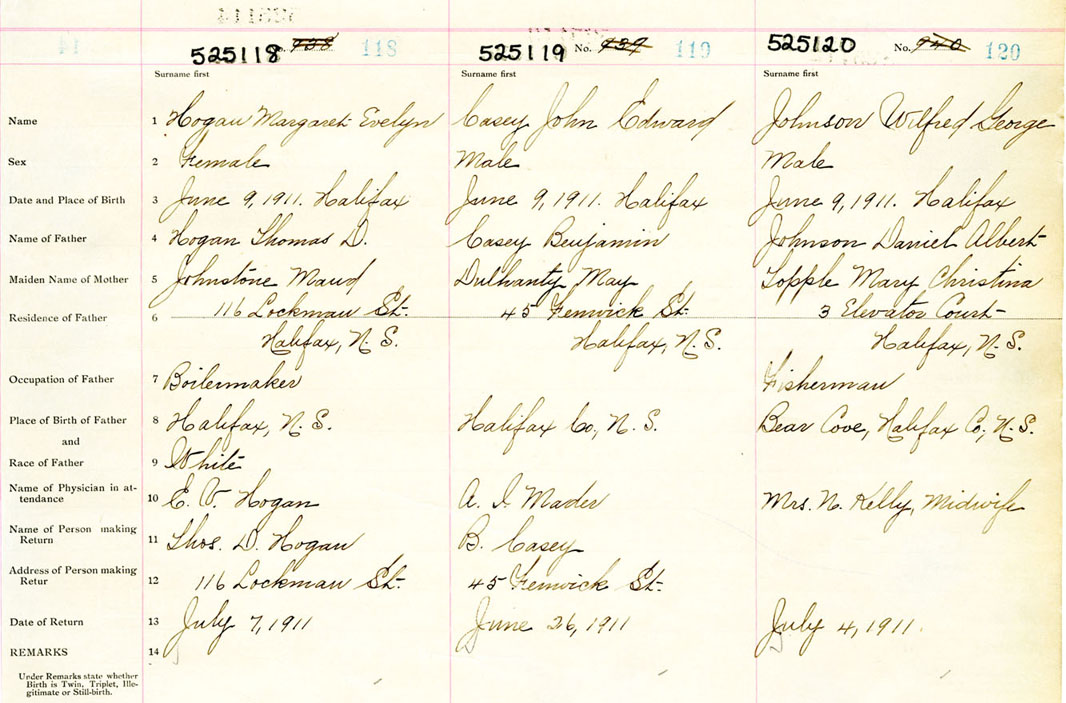 525118 No. 938 118 525119 No. 939 119 525120 No. 940 120
Surname first Surname first Surname first
Name 1 Hogan Margaret Evelyn Casey John Edward Johnson Wilfred George
Sex 2 Female Male Male
Date and Place of Birth 3 June 9, 1911. Halifax June 9, 1911. Halifax June 9, 1911. Halifax
Name of Father 4 Hogan Thomas D. Casey Benjamin Johnson Daniel Albert
Maiden Name of Mother 5 Johnstone Maud Dulhanty May Topple Mary Christina
Residence of Father 6 116 Lockman St. 45 Fenwick St. 3 Elevator Court
Halifax, N.S. Halifax, N.S. Halifax, N.S.
Occupation of Father 7 Boilermaker Fisherman
Place of Birth of Father 8 Halifax, N.S. Halifax Co, N.S. Bear Cove, Halifax Co, N.S.
and
Race of Father 9 White
Name of Physician in at-
tendance 10 E. V. Hogan A. I. Mader Mrs. N. Kelly, Midwife
Name of Person making
Return 11 Thos. D. Hogan B. Casey
Address of Person making
Retur 12 116 Lockman St. 45 Fenwick St.
Date of Return 13 July 7, 1911 June 26, 1911 July 4, 1911.
REMARKS 14
Under Remarks state whether
Birth is Twin, Triplet, Ille-
gitimate or Still-birth.